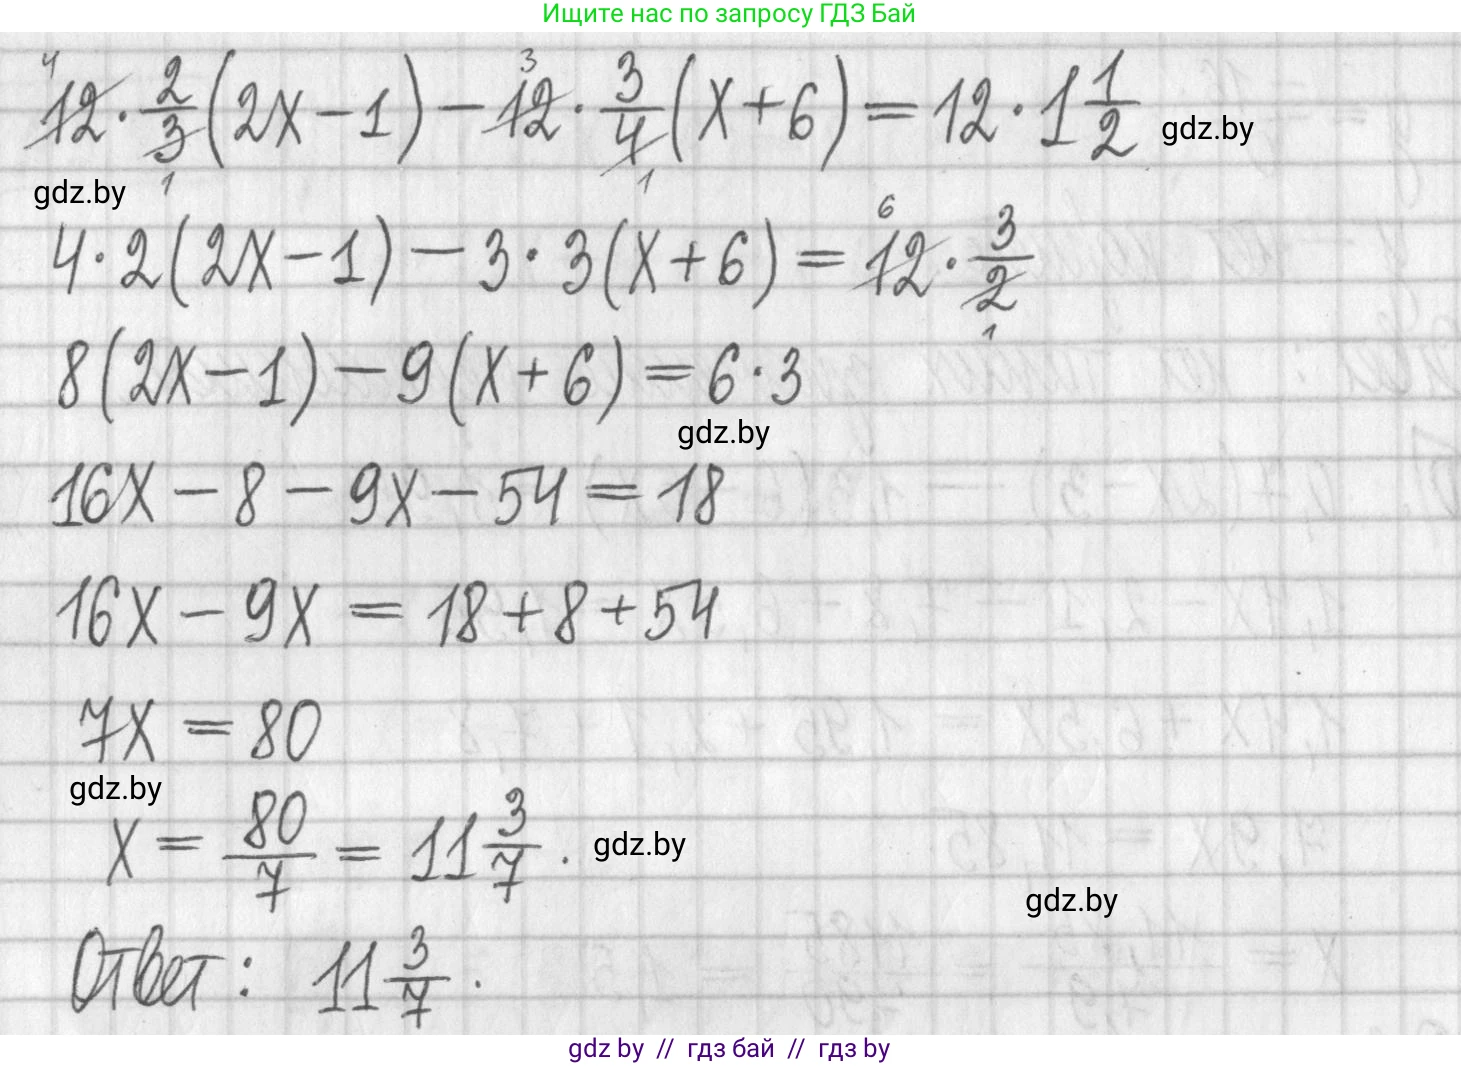 Ищите нас по запросу ГДЗ Бай
12 · 2/3 (2x − 1) − 12 · 3/4 (x + 6) = 12 · 1 1/2
gdz.by
gdz.by
4 · 2(2x − 1) − 3 · 3(x + 6) = 12 · 3/2
8(2x − 1) − 9(x + 6) = 6 · 3
gdz.by
16x − 8 − 9x − 54 = 18
16x − 9x = 18 + 8 + 54
7x = 80
gdz.by
x = 80/7 = 11 3/7 .
gdz.by
gdz.by
Ответ: 11 3/7 .
gdz by // гдз бай // гдз by